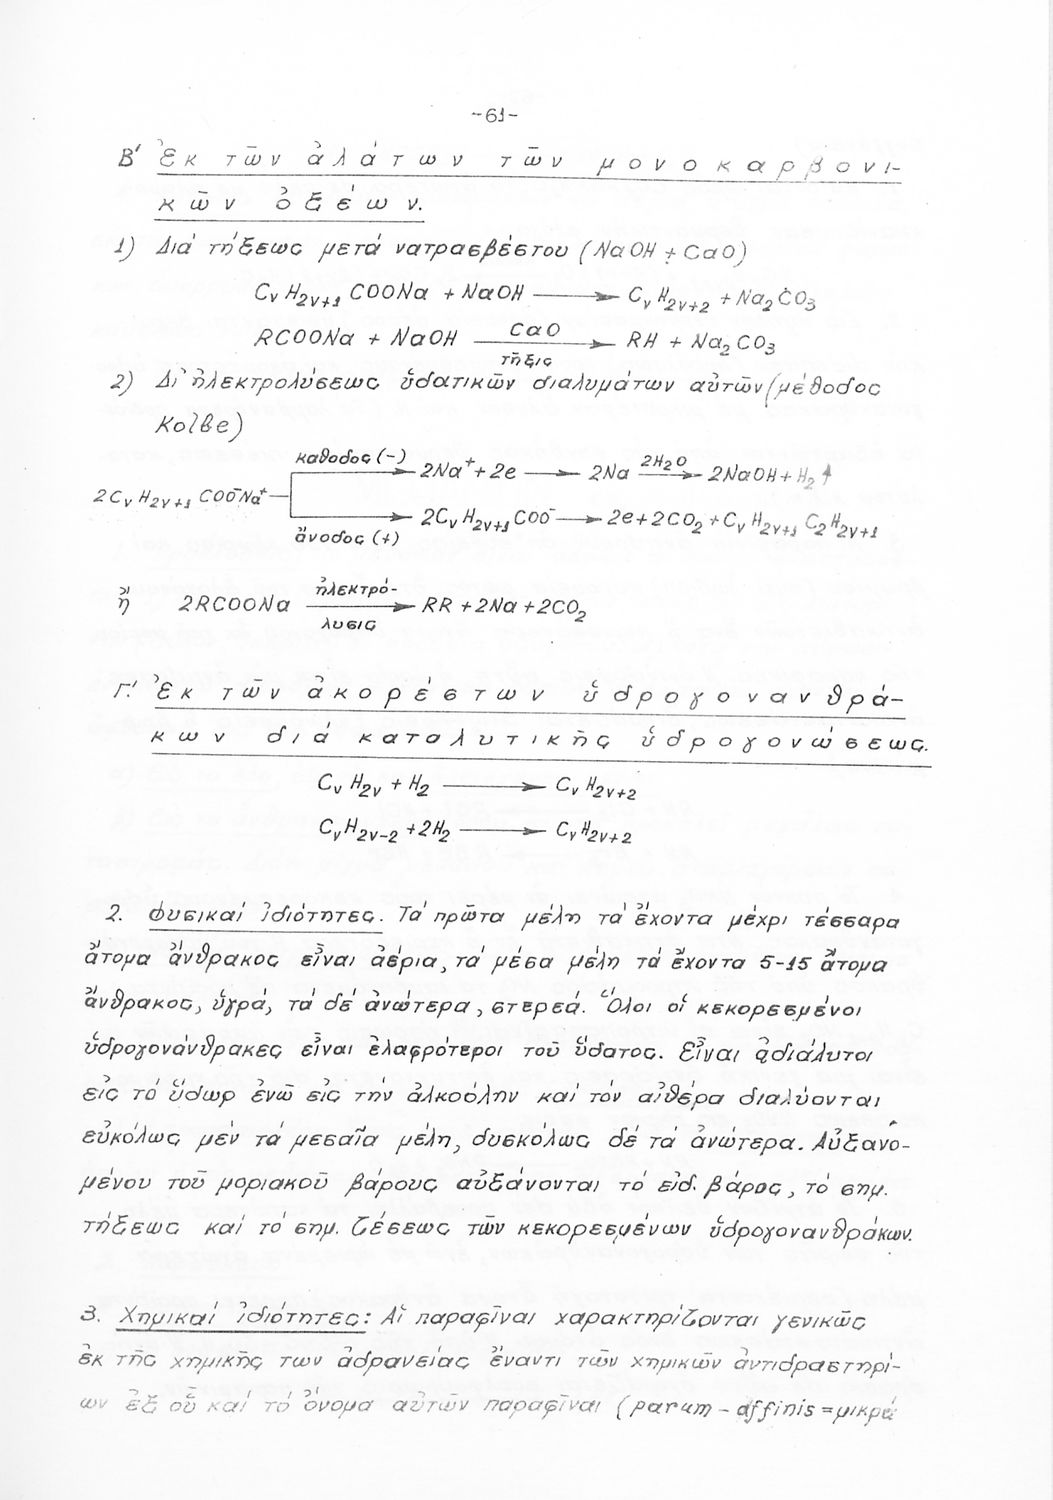 -61-
Β' Ἐκ τῶν ἁλάτων τῶν μονοκαρβονι-
κῶν ὀξέων.
1) Διά τήξεως μετά νατρασβέστου (NaOH + CaO)
CνH2ν+1 COONa + NaOH → CνH2ν+2 + Na2CO3
RCOONa + NaOH CaO → RH + Na2CO3
τῆξις
2) Δι' ἠλεκτρολύσεως ὑδατικῶν διαλυμάτων αὐτῶν (μέθοδος
Kolbe)
κάθοδος (-) → 2Na⁺ + 2e → 2Na 2H2O → 2NaOH + H2↑
2CνH2ν+1 COO⁻Na⁺
→ 2CνH2ν+1COO⁻ → 2e + 2CO2 + CνH2ν+1 C2H2ν+1
ἄνοδος (+)
ἤ 2RCOONa ἠλεκτρό- → RR + 2Na + 2CO2
λυσις
Γ.' Ἐκ τῶν ἀκορέστων ὑδρογονανθρά-
κων διά καταλυτικῆς ὑδρογονώσεως.
CνH2ν + H2 → CνH2ν+2
CνH2ν-2 + 2H2 → CνH2ν+2
2. Φυσικαί ἰδιότητες. Τά πρῶτα μέλη τά ἔχοντα μέχρι τέσσαρα
ἄτομα ἄνθρακος εἶναι ἀέρια, τά μέσα μέλη τά ἔχοντα 5-15 ἄτομα
ἄνθρακος, ὑγρά, τά δέ ἀνώτερα, στερεά. Ὅλοι οἱ κεκορεσμένοι
ὑδρογονάνθρακες εἶναι ἐλαφρότεροι τοῦ ὕδατος. Εἶναι ἀδιάλυτοι
εἰς τό ὕδωρ ἐνῶ εἰς τήν ἀλκοόλην καί τόν αἰθέρα διαλύονται
εὐκόλως μέν τά μεσαῖα μέλη, δυσκόλως δέ τά ἀνώτερα. Αὐξανο-
μένου τοῦ μοριακοῦ βάρους αὐξάνονται τό εἰδ. βάρος, τό σημ.
τήξεως καί τό σημ. ζέσεως τῶν κεκορεσμένων ὑδρογονανθράκων.
3. Χημικαί ἰδιότητες: Αἱ παραφῖναι χαρακτηρίζονται γενικῶς
ἐκ τῆς χημικῆς των ἀδρανείας ἔναντι τῶν χημικῶν ἀντιδραστηρί-
ων ἐξ οὗ καί τό ὄνομα αὐτῶν παραφῖναι (parum - affinis = μικρά